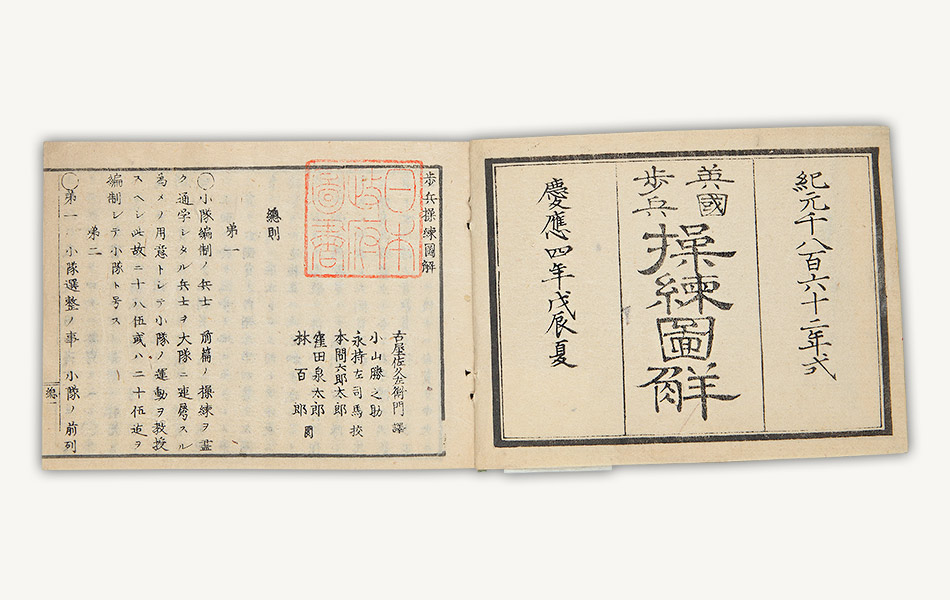 紀元千八百六十二年式
英國
歩兵
操練圖解
慶應四年戊辰夏
歩兵操練圖解
日本
政府
圖書
古屋佐久左衛門 譯
小山勝之助
永持左司馬 挍
本間六郎太郎
窪田泉太郎
林百郎
總則
第一
〇小隊編制ノ兵士 前篇ノ操練ヲ盡
ク通字シタル兵士ヲ大隊ニ連房スル
為メノ用意トシテ小隊ノ運動ヲ教授
スヘシ此故ニ十八伍或ハ二十伍迄ヲ
編制シテ小隊ト号ス
第二
〇第一 小隊選整ノ事 小隊ノ前列
總一